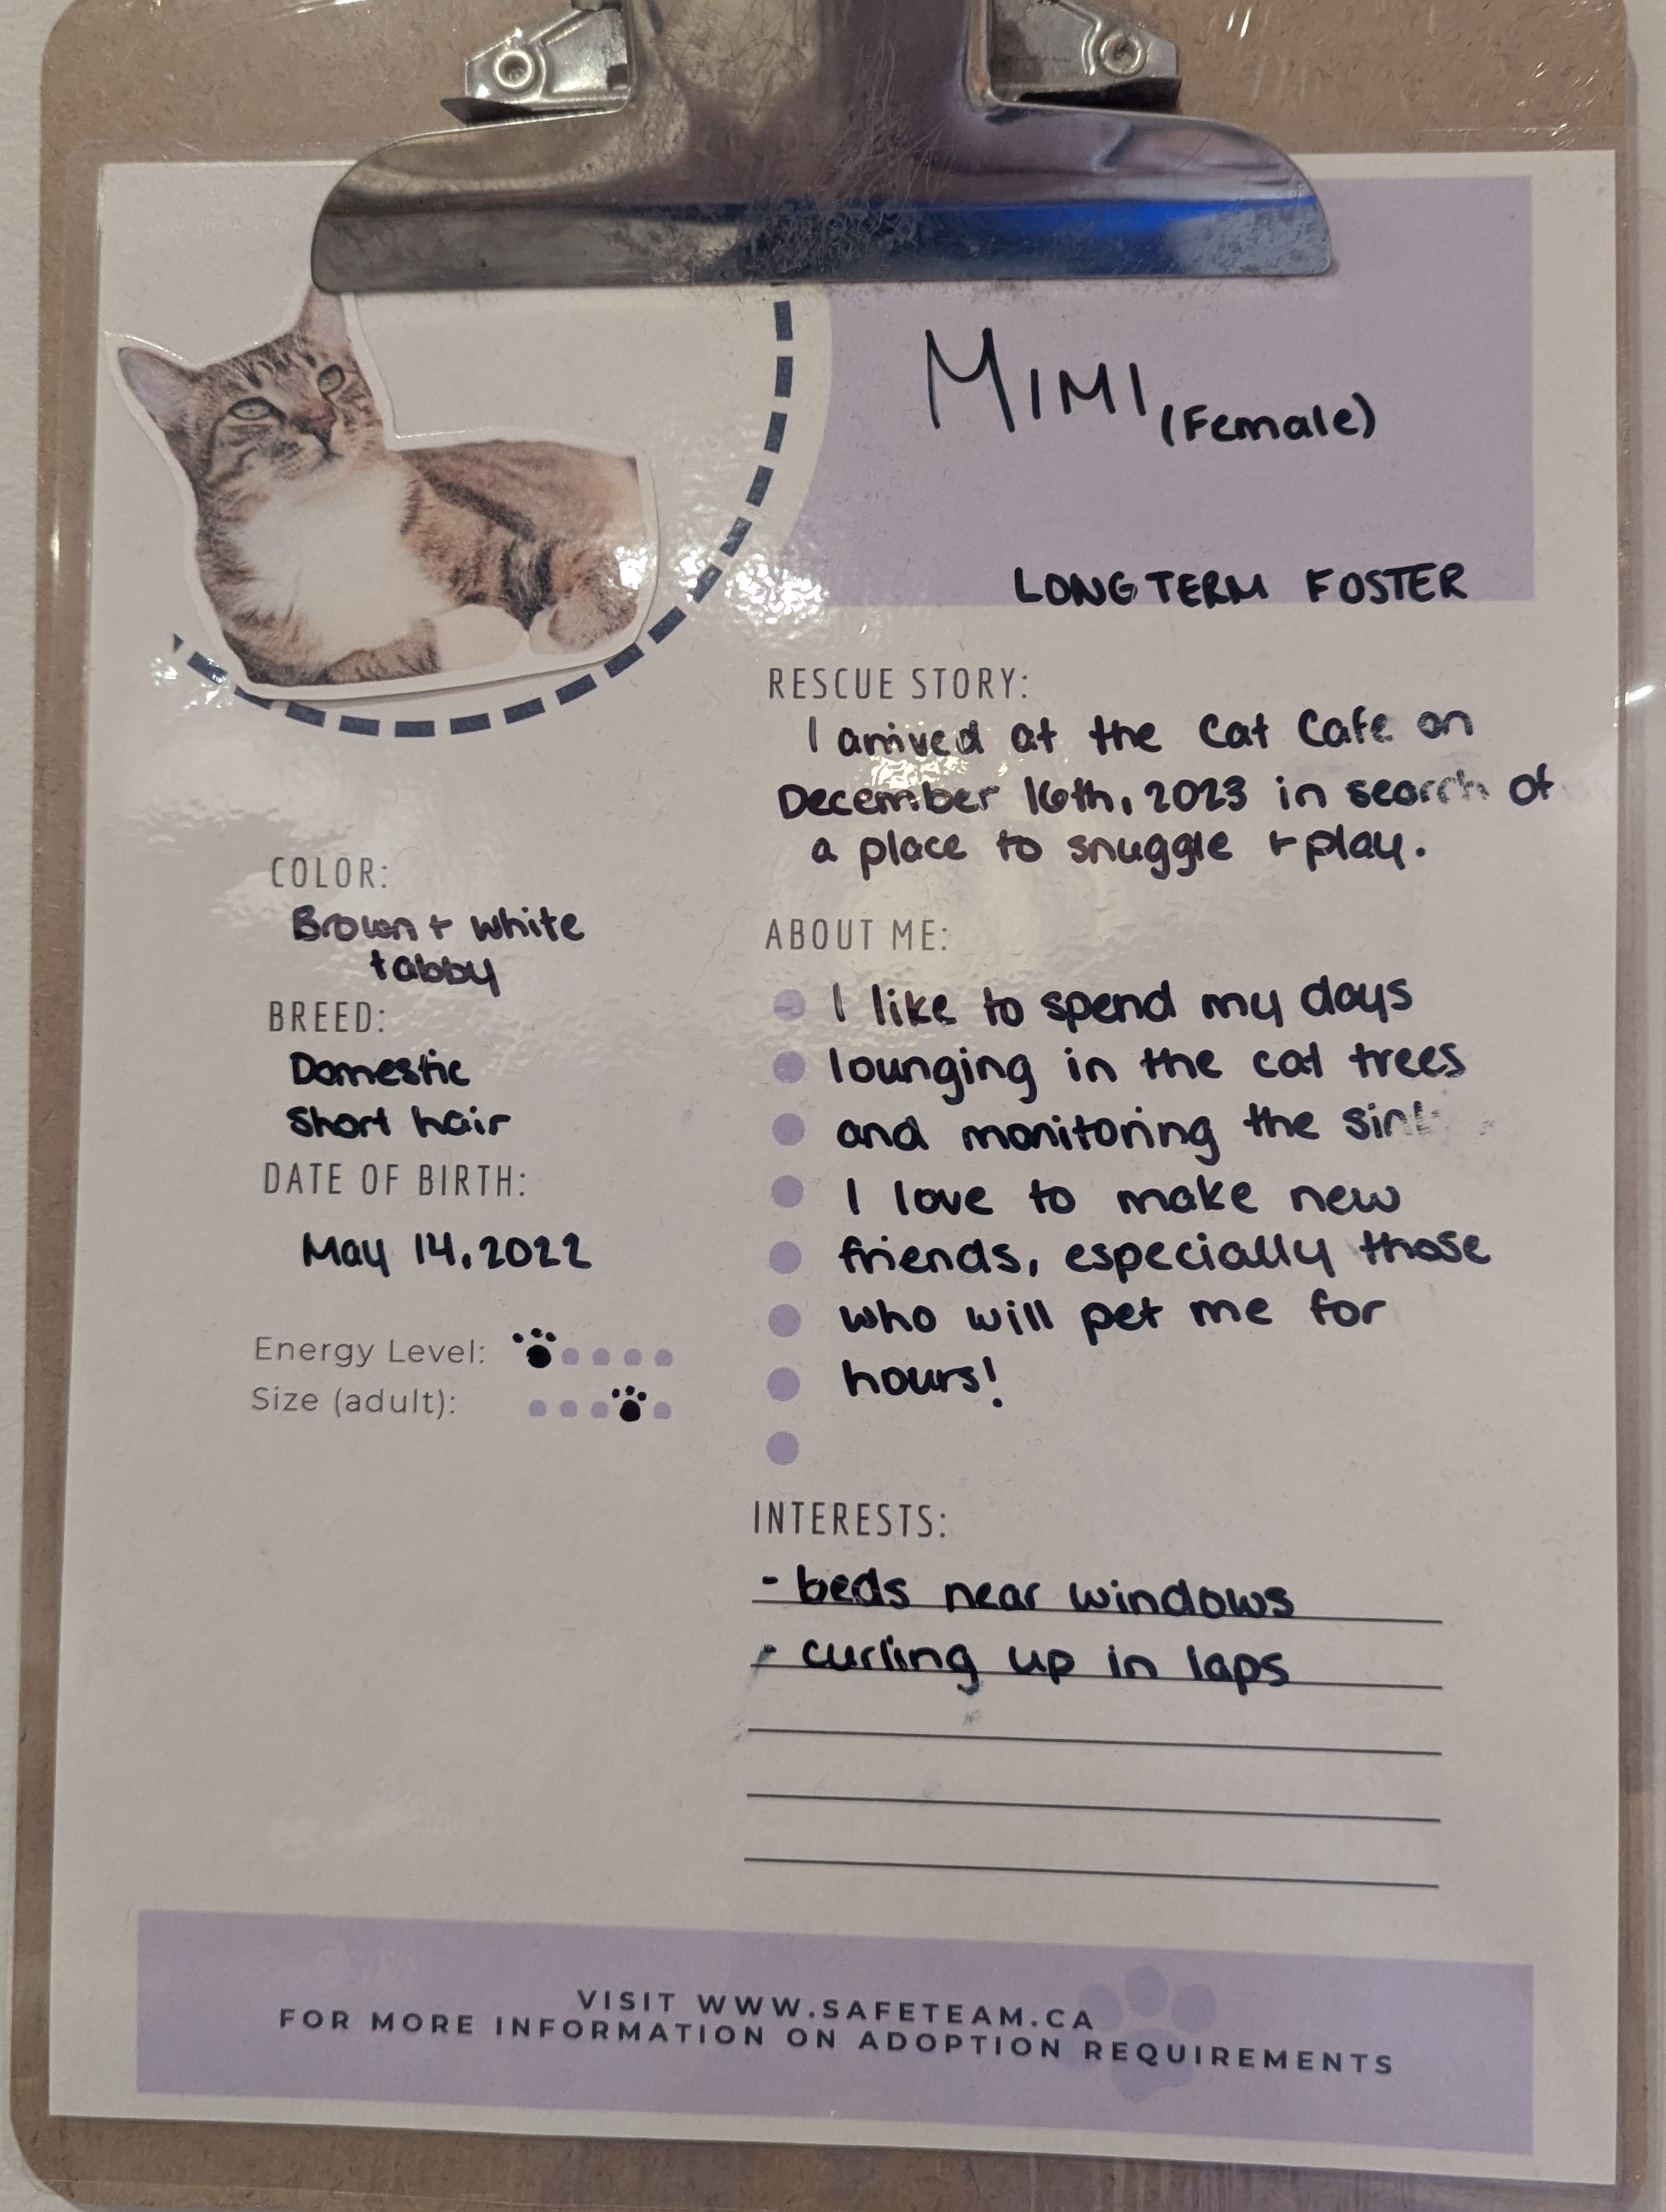 MIMI (Female)
LONG TERM FOSTER
RESCUE STORY:
I arrived at the Cat Cafe on
December 16th, 2023 in search of
a place to snuggle + play.
COLOR:
Brown + white
tabby
BREED:
Domestic
Short hair
DATE OF BIRTH:
May 14, 2022
Energy Level:
Size (adult):
ABOUT ME:
I like to spend my days
lounging in the cat trees
and monitoring the sink
I love to make new
friends, especially those
who will pet me for
hours!
INTERESTS:
- beds near windows
- curling up in laps
VISIT WWW.SAFETEAM.CA
FOR MORE INFORMATION ON ADOPTION REQUIREMENTS